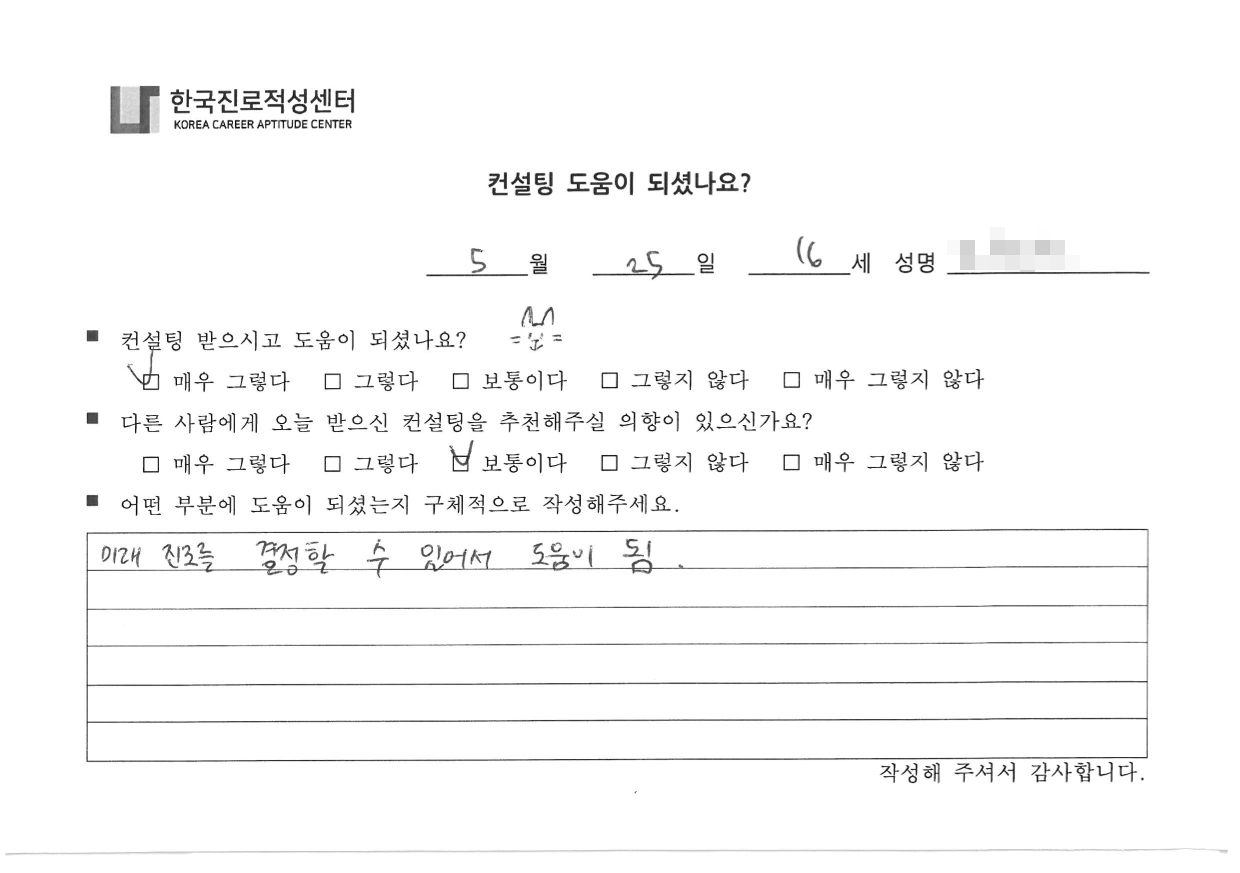 한국진로적성센터
KOREA CAREER APTITUDE CENTER
컨설팅 도움이 되셨나요?
5 월 25 일 16 세 성명
■ 컨설팅 받으시고 도움이 되셨나요?
☑ 매우 그렇다 □ 그렇다 □ 보통이다 □ 그렇지 않다 □ 매우 그렇지 않다
■ 다른 사람에게 오늘 받으신 컨설팅을 추천해주실 의향이 있으신가요?
□ 매우 그렇다 □ 그렇다 ☑ 보통이다 □ 그렇지 않다 □ 매우 그렇지 않다
■ 어떤 부분에 도움이 되셨는지 구체적으로 작성해주세요.
미래 진로를 결정할 수 있어서 도움이 됨.
작성해 주셔서 감사합니다.